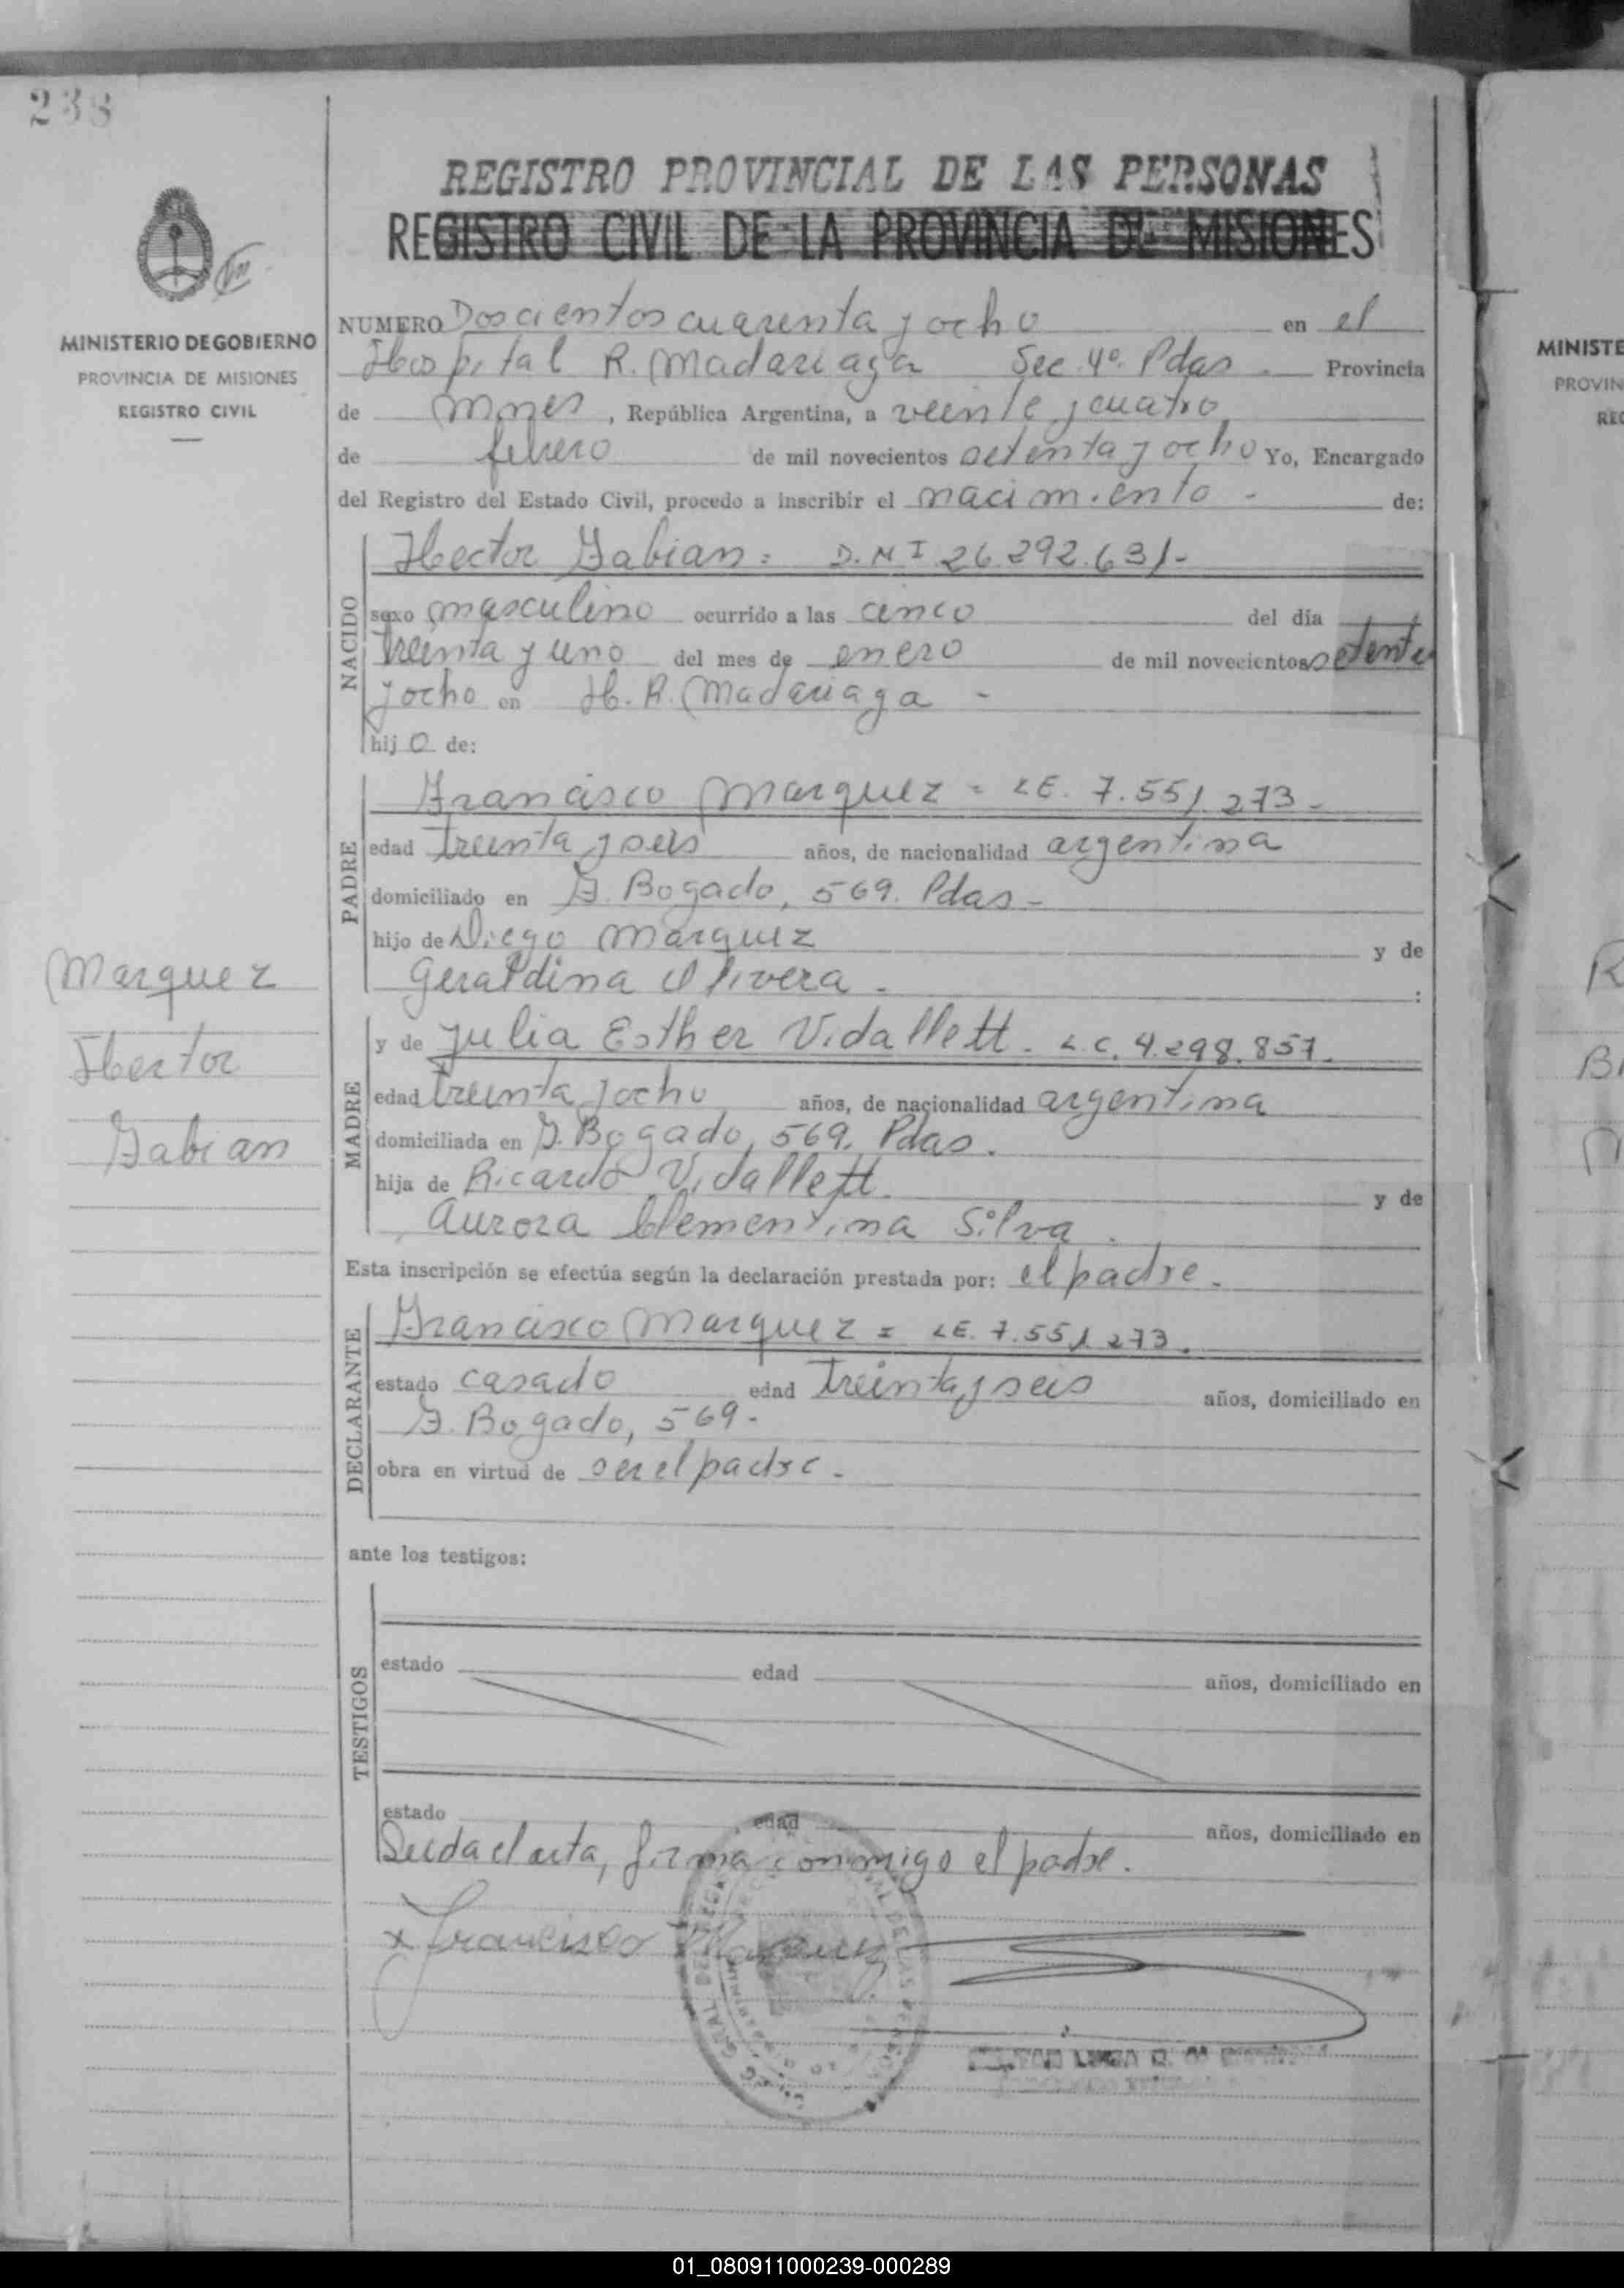 238
REGISTRO PROVINCIAL DE LAS PERSONAS
REGISTRO CIVIL DE LA PROVINCIA DE MISIONES
MINISTERIO DE GOBIERNO
PROVINCIA DE MISIONES
REGISTRO CIVIL
NUMERO Doscientos cuarenta y ocho en el
Hospital R. Madariaga Sec. 4º. Pdas. Provincia
de Mnes, República Argentina, a veinte y cuatro
de febrero de mil novecientos setenta y ocho Yo, Encargado
del Registro del Estado Civil, procedo a inscribir el nacimiento - de:
NACIDO
Hector Fabian = D.N.I 26.292.631-
sexo masculino ocurrido a las cinco del día
treinta y uno del mes de enero de mil novecientos setenta
y ocho en H. R. Madariaga -
hijo de:
PADRE
Francisco Marquez = LE. 7.551.273-
edad treinta y seis años, de nacionalidad argentina
domiciliado en F. Bogado, 569. Pdas-
hijo de Diego Marquez y de
Geraldina Olivera - :
MADRE
y de Julia Esther Vidallett. L.C. 4.298.857.
edad treinta y ocho años, de nacionalidad argentina
domiciliada en F. Bogado, 569. Pdas.
hija de Ricardo Vidallett. y de
Aurora Clementina Silva.
Marquez
Hector
Fabian
Esta inscripción se efectúa según la declaración prestada por: el padre.
DECLARANTE
Francisco Marquez = LE. 7.551.273.
estado casado edad treinta y seis años, domiciliado en
F. Bogado, 569-
obra en virtud de ser el padre -
ante los testigos:
TESTIGOS
estado edad años, domiciliado en
estado edad años, domiciliado en
Leida el acta, firma conmigo el padre.
x Francisco Marquez
MINISTE
PROVIN
REG
01_080911000239-000289